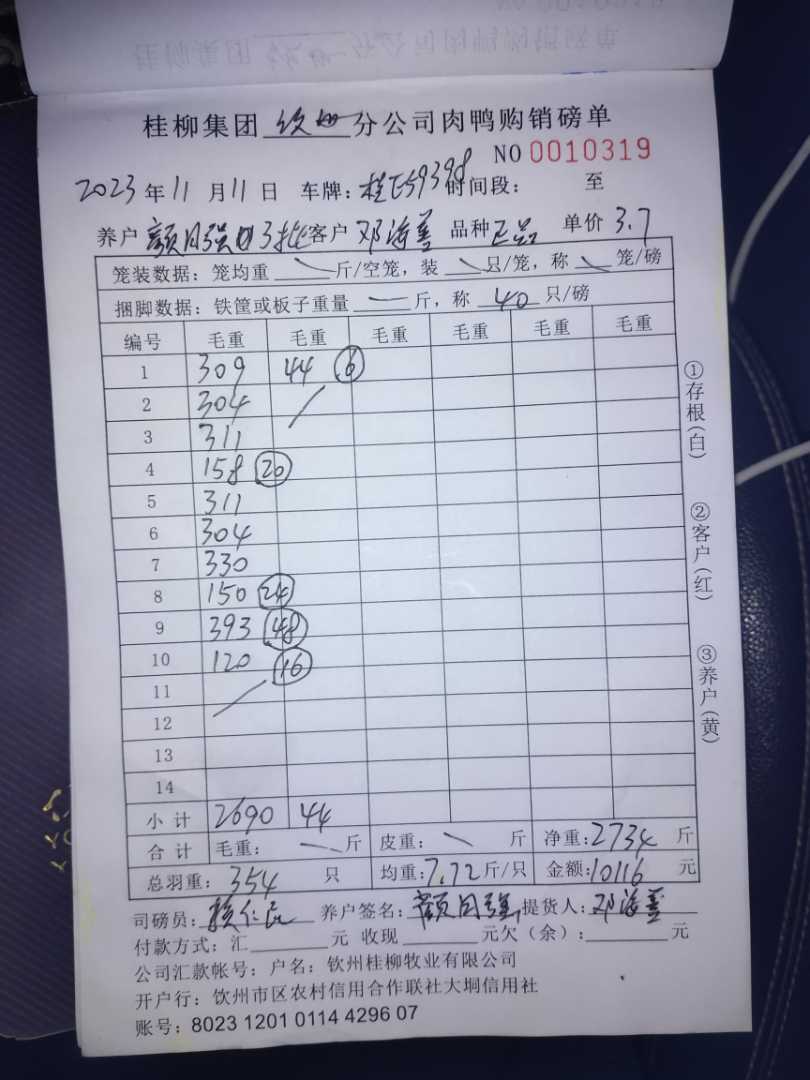 桂柳集团 钦州 分公司肉鸭购销磅单
NO 0010319
2023 年 11 月 11 日 车牌: 桂 59398 时间段: 至
养户 颜月强 3批 客户 邓海善 品种 正品 单价 3.7
笼装数据: 笼均重 斤/空笼, 装 只/笼, 称 笼/磅
捆脚数据: 铁筐或板子重量 — 斤, 称 40 只/磅
编号 毛重 毛重 毛重 毛重 毛重 毛重
1 309 44 6
2 304
3 311
4 158 20
5 311
6 304
7 330
8 150 24
9 393 48
10 120 16
11
12
13
14
小计 2690 44
合计 毛重: 斤 皮重: 斤 净重: 2734 斤
总羽重: 354 只 均重: 7.72 斤/只 金额: 10116 元
司磅员: 养户签名: 颜月强 提货人: 邓海善
付款方式: 汇 元 收现 元欠(余): 元
公司汇款帐号: 户名: 钦州桂柳牧业有限公司
开户行: 饮州市区农村信用合作联社大垌信用社
账号: 8023 1201 0114 4296 07
①存根(白)
②客户(红)
③养户(黄)